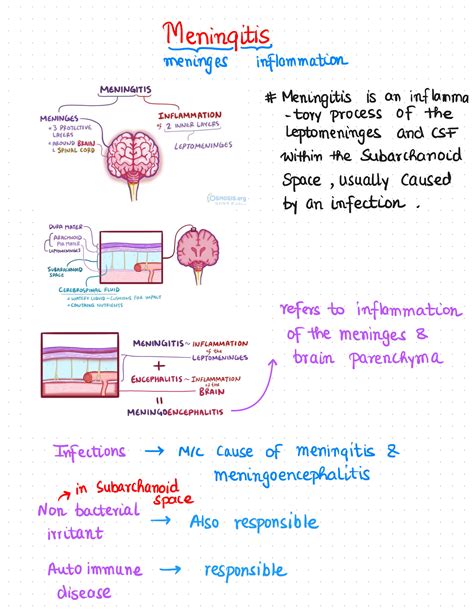 Meningitis
meninges inflammation
MENINGITIS
MENINGES
• 3 PROTECTIVE
LAYERS
• AROUND BRAIN
& SPINAL CORD
INFLAMMATION
of 2 INNER LAYERS
LEPTOMENINGES
Osmosis.org
# Meningitis is an inflamma
-tory process of the
leptomeninges and CSF
within the Subarchanoid
Space, usually Caused
by an infection.
DURA MATER
ARACHNOID
PIA MATER
LEPTOMENINGES
SUBARACHNOID
SPACE
CEREBROSPINAL FLUID
• WATERY LIQUID ~ CUSHIONS FOR IMPACT
• CONTAINS NUTRIENTS
MENINGITIS ~ INFLAMMATION
of the
LEPTOMENINGES
+
ENCEPHALITIS ~ INFLAMMATION
of the
BRAIN
=
MENINGOENCEPHALITIS
refers to inflammation
of the meninges &
brain parenchyma
Infections → M/C Cause of meningitis &
meningoencephalitis
in Subarchanoid
space
Non bacterial
irritant → Also responsible
Auto immune
disease → responsible